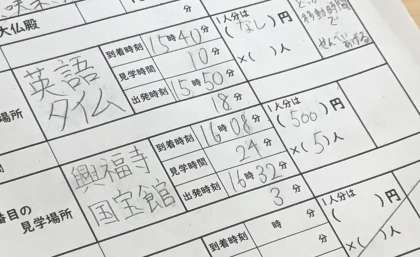 大仏殿
分
1人分は
(なし)円
×( )人
移動時間
で
場所
英語
タイム
到着時刻 15時40分
見学時間 10分
出発時刻 15時50分
18分
興福寺
国宝館
到着時刻 16時08分
見学時間 24分
出発時刻 16時32分
3分
1人分は
(500)円
×(5)人
番目の
見学場所
到着時刻 時 分
分
1人分は
( )円
×( )人